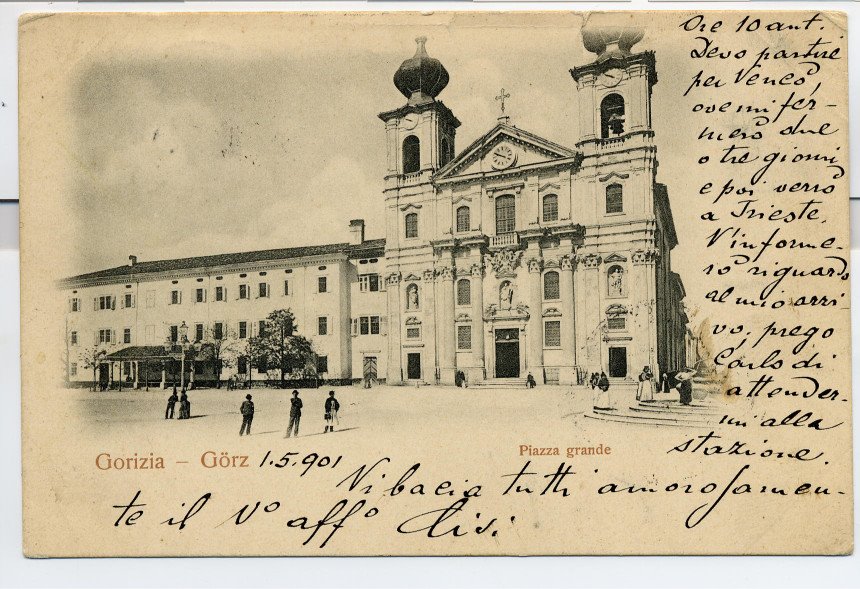 Ore 10 ant.
Devo partire
per Venezª,
ove mi fer-
merò due
o tre giorni
e poi verrò
a Trieste.
V'informe-
rò riguardo
al mio arri-
vo, prego
Carlo di
attender-
mi alla
stazione.
Gorizia – Görz 1.5.901
Piazza grande
Vi bacia tutti amorosamen-
te il Vº affº